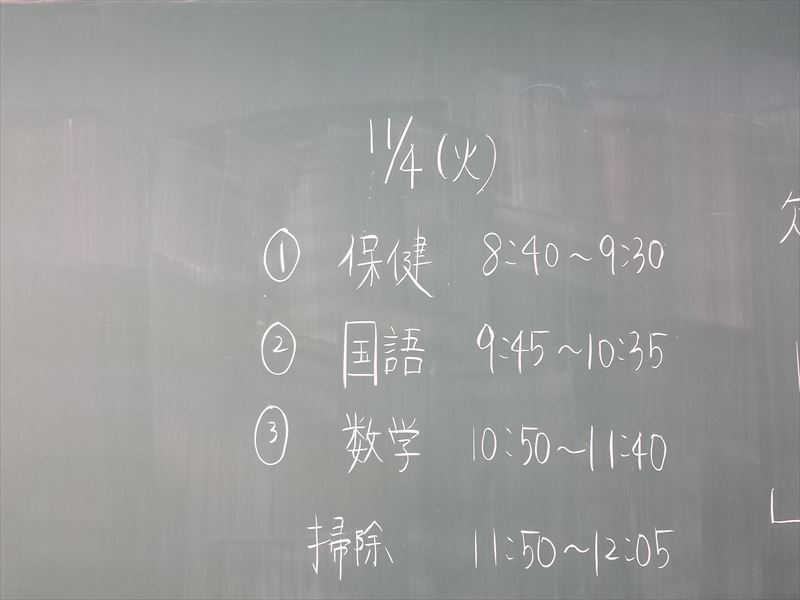 11/4(火)
① 保健 8:40~9:30
② 国語 9:45~10:35
③ 数学 10:50~11:40
掃除 11:50~12:05